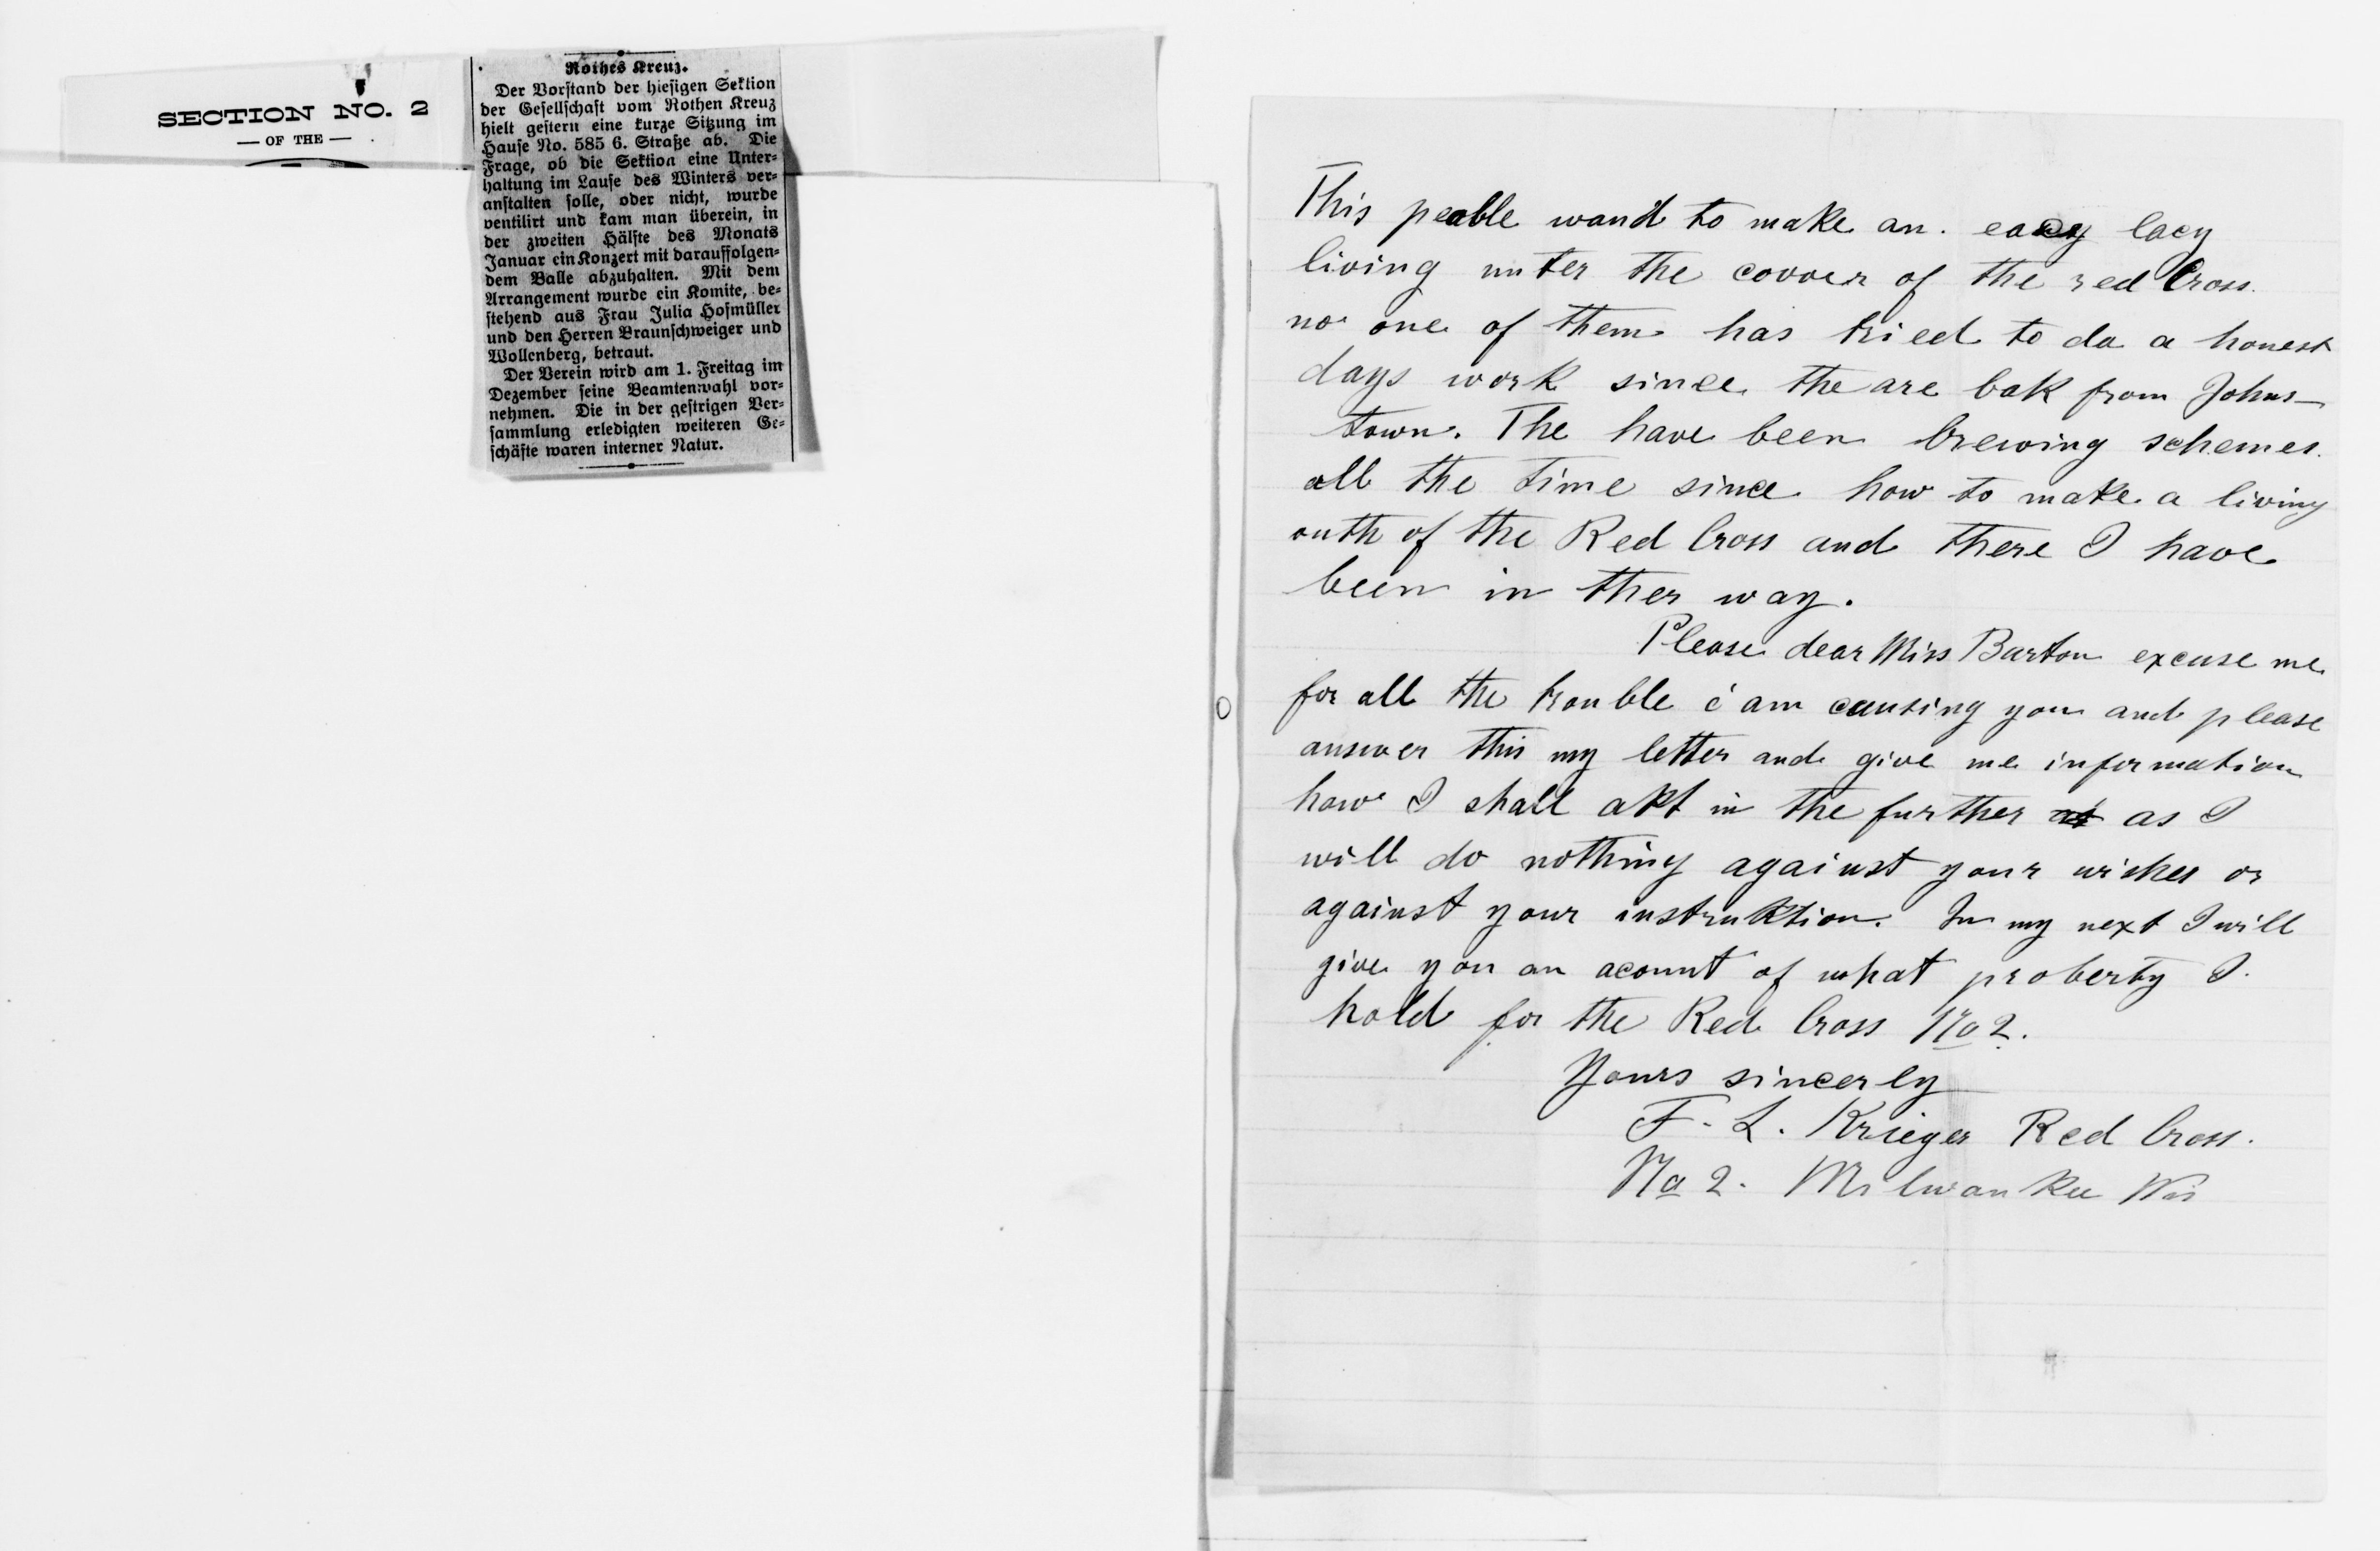 SECTION NO. 2
— OF THE —
Rothes Kreuz.
Der Vorstand der hiesigen Sektion
der Gesellschaft vom Rothen Kreuz
hielt gestern eine kurze Sitzung im
Hause No. 585 6. Straße ab. Die
Frage, ob die Sektion eine Unter-
haltung im Laufe des Winters ver-
anstalten solle, oder nicht, wurde
ventilirt und kam man überein, in
der zweiten Hälfte des Monats
Januar ein Konzert mit darauffolgen-
dem Balle abzuhalten. Mit dem
Arrangement wurde ein Komite, be-
stehend aus Frau Julia Hofmüller
und den Herren Braunschweiger und
Wollenberg, betraut.
Der Verein wird am 1. Freitag im
Dezember seine Beamtenwahl vor-
nehmen. Die in der gestrigen Ver-
sammlung erledigten weiteren Ge-
schäfte waren interner Natur.
This peable wand to make an. eacy lacy
living unter the covver of the red Cross.
no one of them has tried to do a honest
days work since the are bak from Johns-
town. The have been brewing schemes
all the time since how to make a living
outh of the Red Cross and there I have
been in ther way.
Please dear Miss Barton excuse me
for all the trouble i am causing you and please
answer this my letter and give me information
how I shall akt in the further as I
will do nothing against your wishes or
against your instruktion. In my next I will
give you an acount of what proberty I
hold for the Red Cross No 2.
Yours sincerly
F. L. Krieger Red Cross.
No 2. Milwaukee Wis